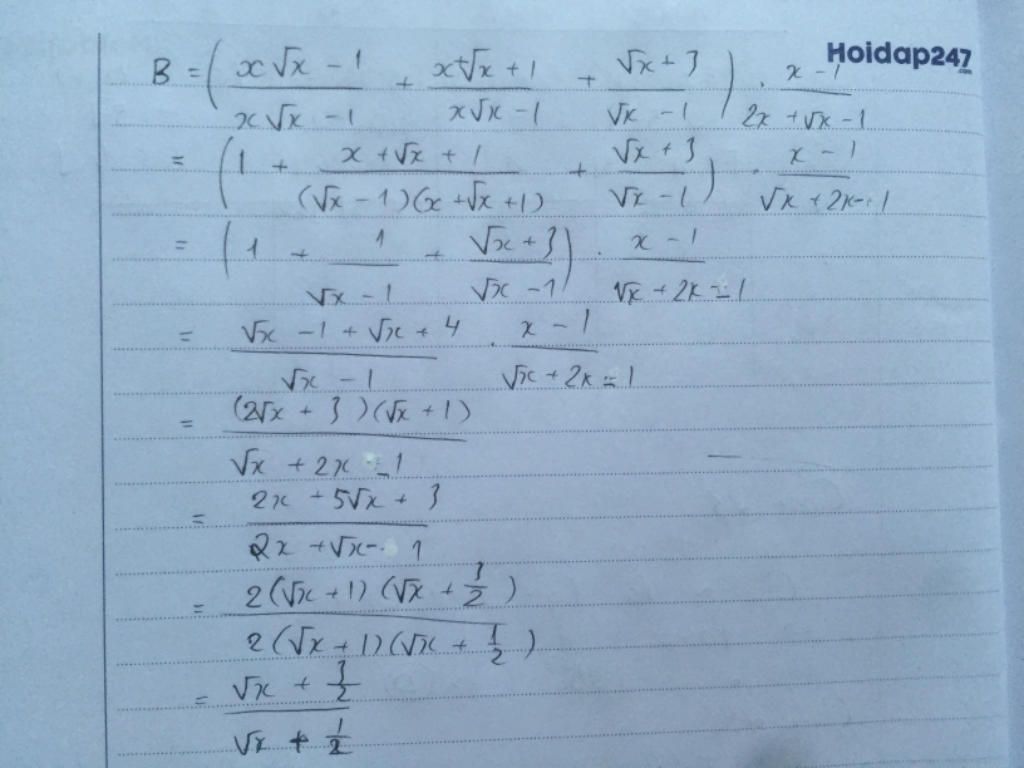 Hoidap247
.com
B = ( (x√x - 1)/(x√x - 1) + (x+√x + 1)/(x√x - 1) + (√x + 3)/(√x - 1) ) . (x - 1)/(2x + √x - 1)
= ( 1 + (x + √x + 1)/((√x - 1)(x + √x + 1)) + (√x + 3)/(√x - 1) ) . (x - 1)/(√x + 2x - 1)
= ( 1 + 1/(√x - 1) + (√x + 3)/(√x - 1) ) . (x - 1)/(√x + 2x - 1)
= (√x - 1 + √x + 4)/(√x - 1) . (x - 1)/(√x + 2x - 1)
= ((2√x + 3)(√x + 1))/(√x + 2x - 1)
= (2x + 5√x + 3)/(2x + √x - 1)
= (2(√x + 1)(√x + 3/2))/(2(√x + 1)(√x + 1/2))
= (√x + 3/2)/(√x + 1/2)